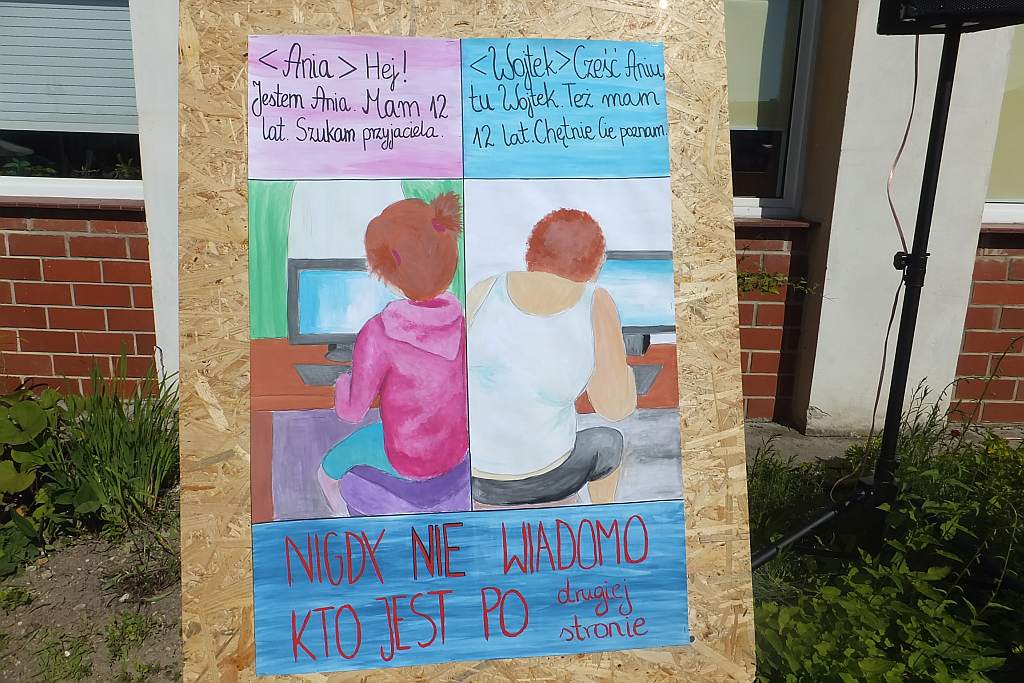 <Ania> Hej!
Jestem Ania. Mam 12
lat. Szukam przyjaciela.
<Wojtek> Cześć Aniu,
tu Wojtek. Też mam
12 lat. Chętnie Cie poznam.
NIGDY NIE WIADOMO
KTO JEST PO drugiej
stronie